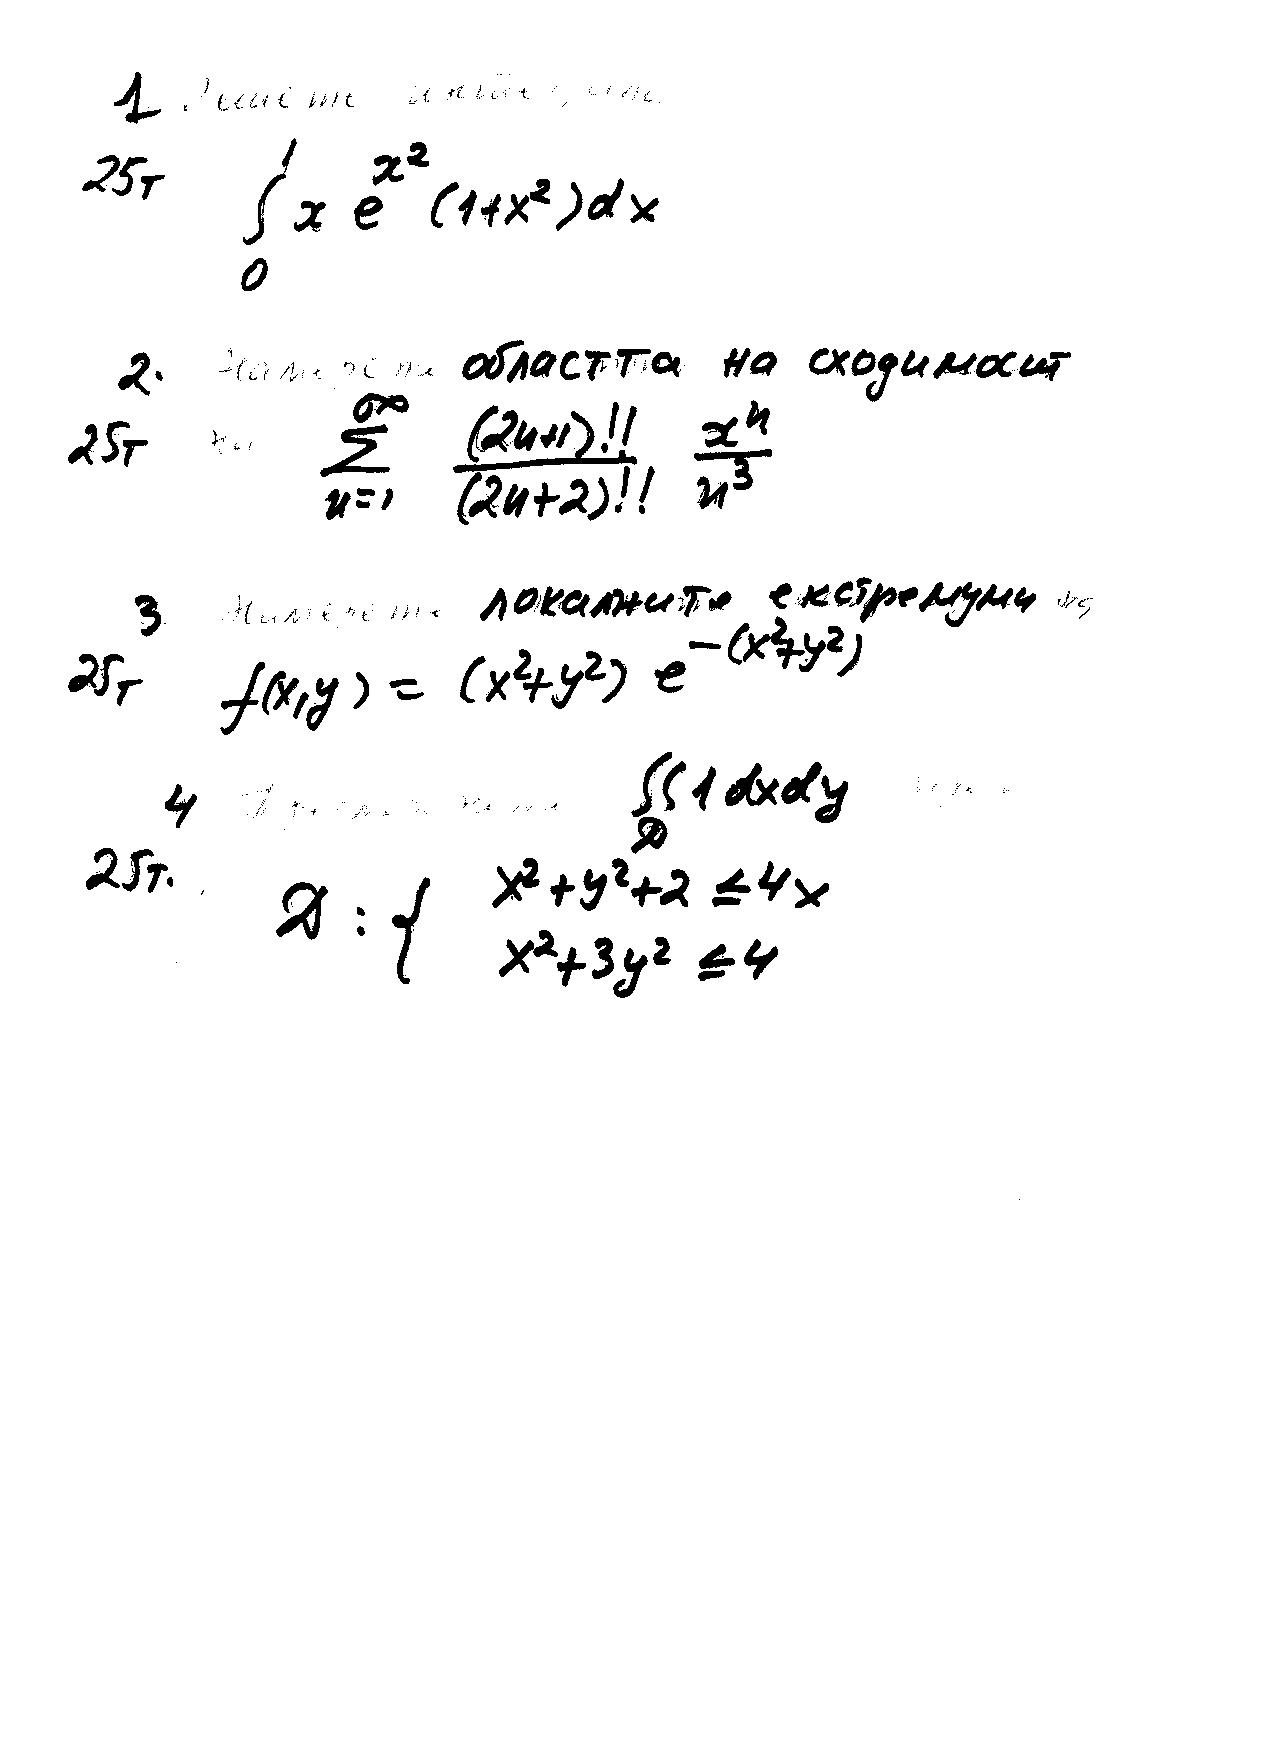 1 Решете интеграла
25т ∫₀¹ x e^{x²} (1+x²) dx
2. Намерете областта на сходимост
25т на ∑_{n=1}^{∞} (2n+1)!!/(2n+2)!! xⁿ/n³
3 Намерете локалните екстремуми на
25т f(x,y) = (x²+y²) e^{-(x²+y²)}
4 ∬_D 1 dxdy
25т. D : { x²+y²+2 ≤ 4x
x²+3y² ≤ 4